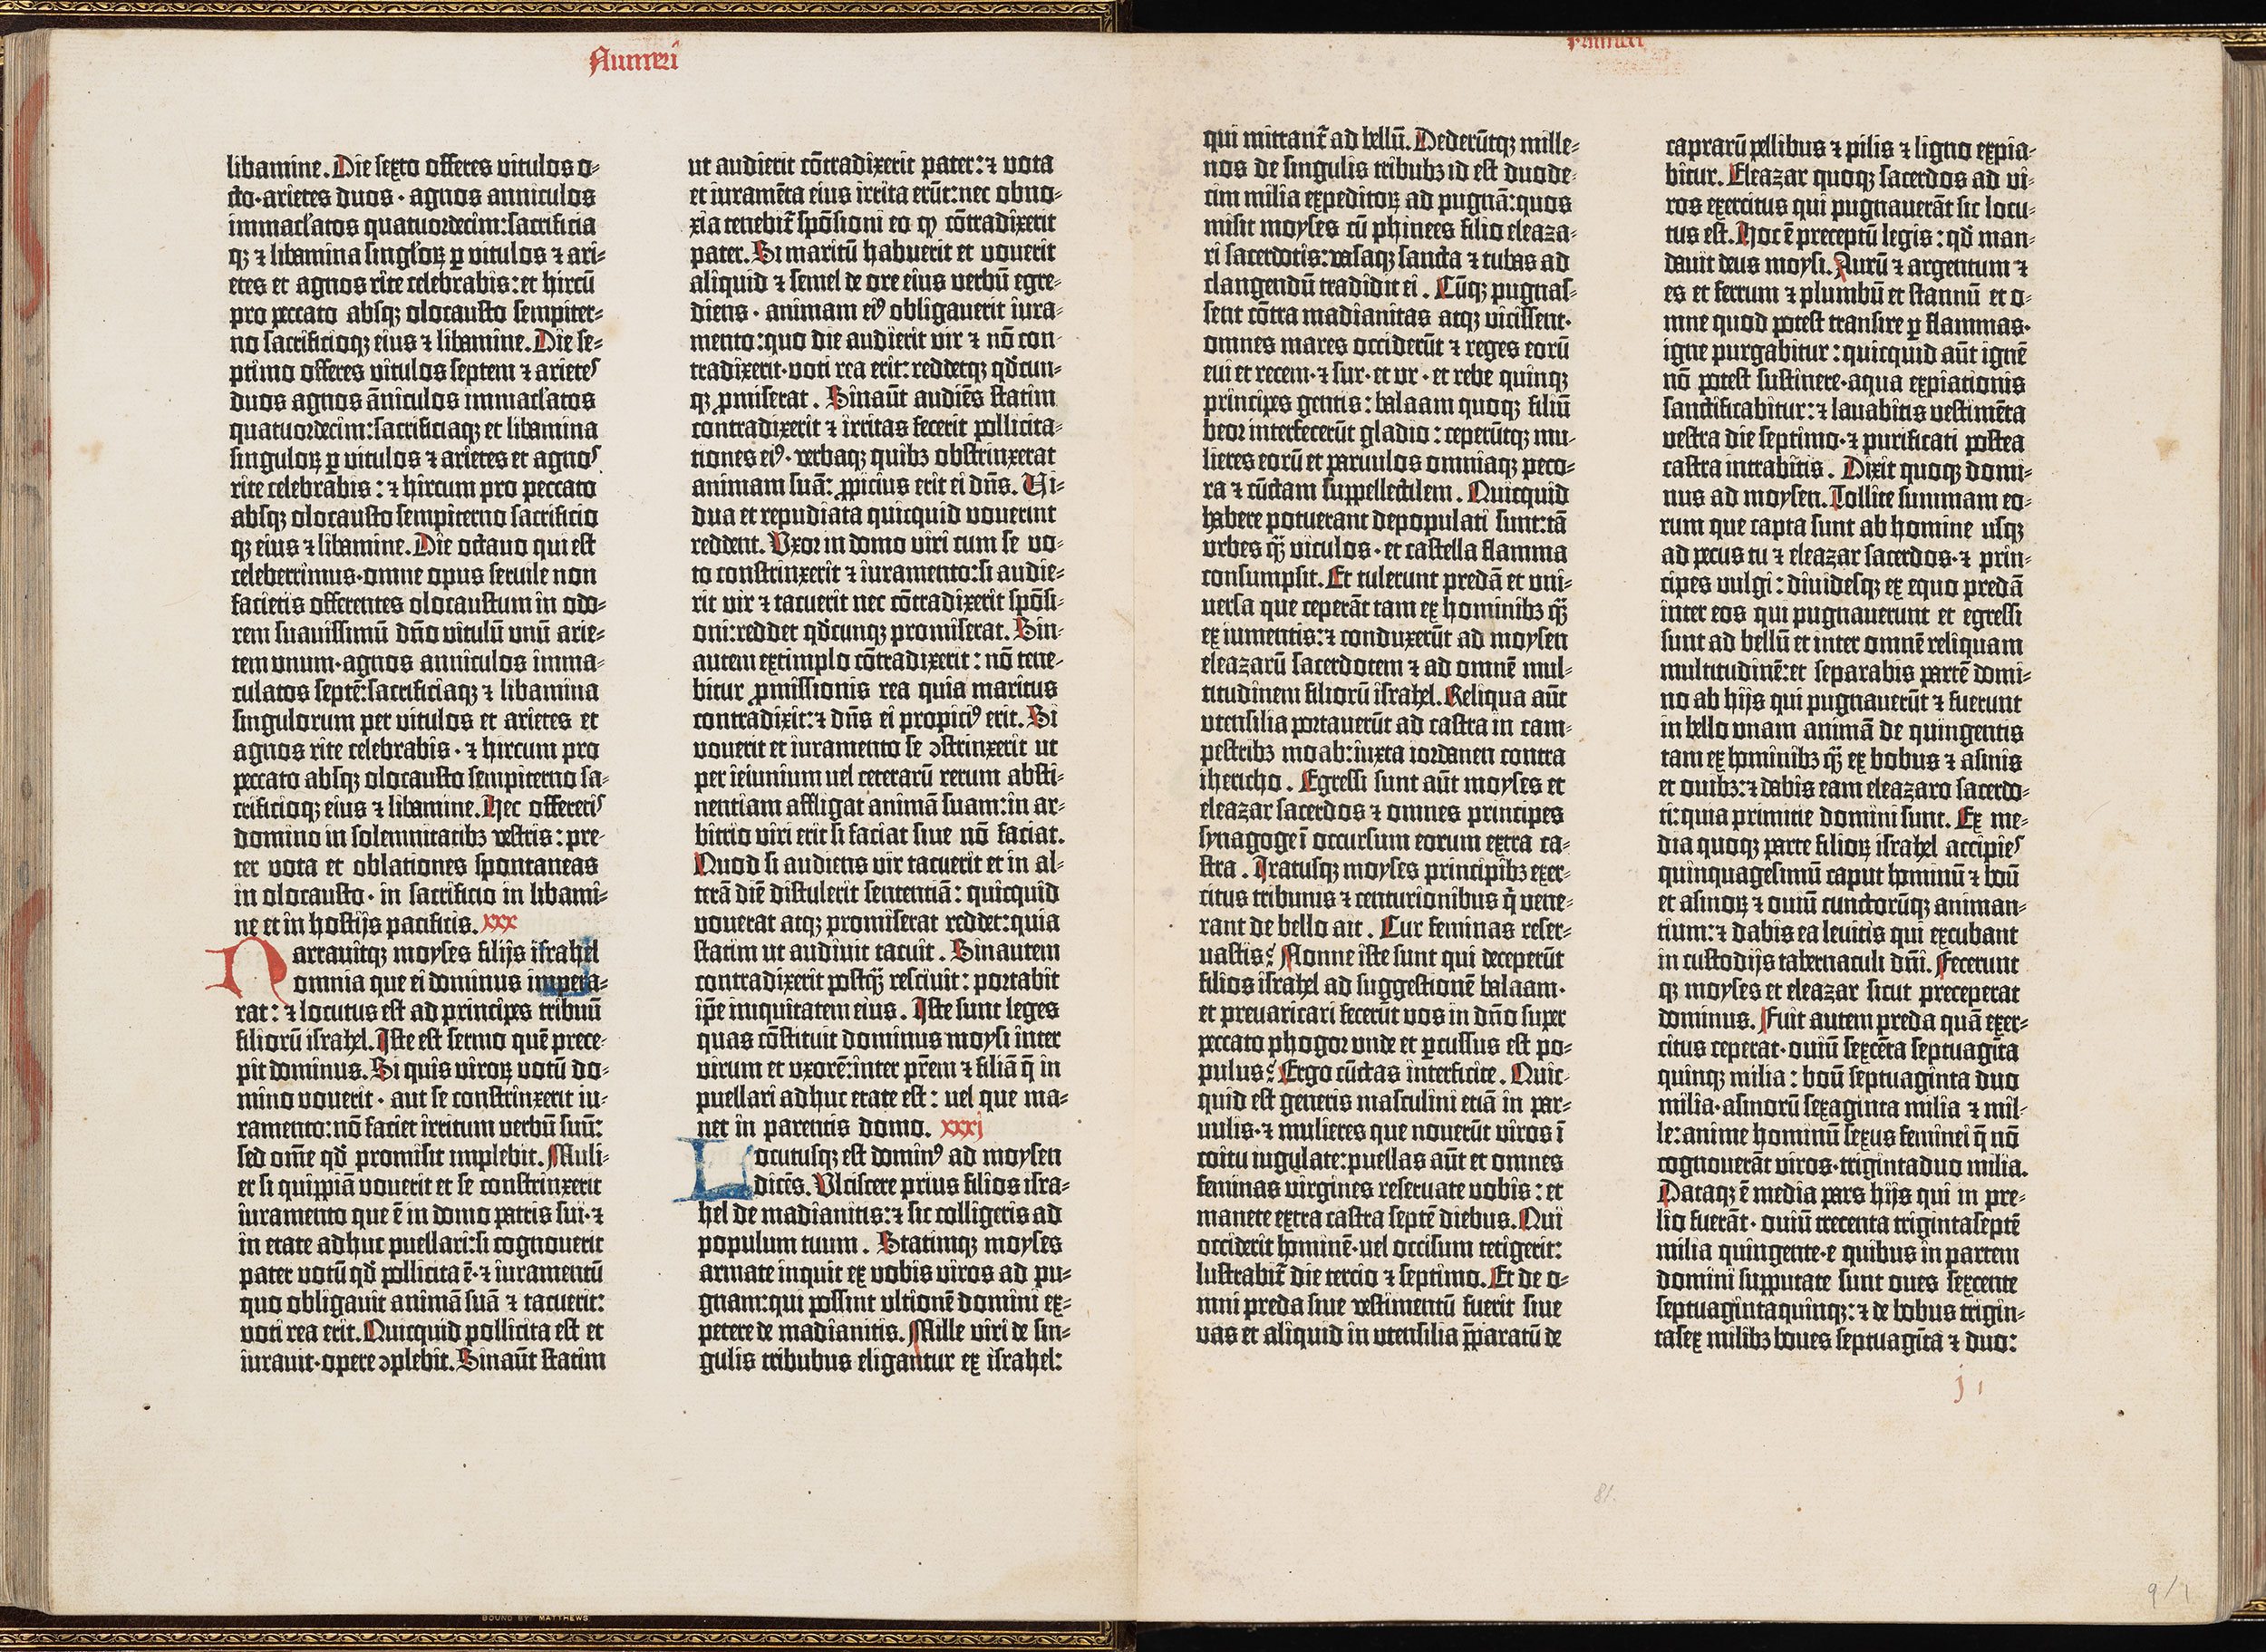 Numeri
libamine. Die sexto offeres vitulos o-
cto·arietes duos·agnos anniculos
immacl'atos quatuordecim:sacrificia
qꝫ ⁊ libamina singl'oꝝ ꝑ vitulos ⁊ ari-
etes et agnos rite celebrabis:et hircū
pro peccato absqꝫ olocausto sempiter-
no sacrificioqꝫ eius ⁊ libamine. Die se-
ptimo offeres vitulos septem ⁊ arietes
duos agnos āniculos immacl'atos
quatuordecim:sacrificiaqꝫ et libamina
singuloꝝ ꝑ vitulos ⁊ arietes et agnos
rite celebrabis:⁊ hircum pro peccato
absqꝫ olocausto sempiterno sacrificio
qꝫ eius ⁊ libamine. Die octauo qui est
celeberrimus·omne opus seruile non
facietis offerentes olocaustum in odo-
rem suauissimū dño vitulū vnū arie-
tem vnum·agnos anniculos imma-
culatos septē:sacrificiaqꝫ ⁊ libamina
singulorum per vitulos et arietes et
agnos rite celebrabis·⁊ hircum pro
peccato absqꝫ olocausto sempiterno sa-
crificioqꝫ eius ⁊ libamine. Hec offeretis
domino in solemnitatibꝫ vestris:pre-
ter vota et oblationes spontaneas
in olocausto·in sacrificio in libami-
ne et in hostijs pacificis. xxx
Narrauitqꝫ moyses filijs israhel
omnia que ei dominus impera-
rat:⁊ locutus est ad principes tribuū
filiorū israhel. Iste est sermo quē prece-
pit dominus. Si quis viroꝝ votū do-
mino vouerit·aut se constrinxerit iu-
ramento:nō faciet irritum verbū suū:
sed om̄e qd̄ promisit implebit. Muli-
er si quippiā vouerit et se constrinxerit
iuramento que ē in domo patris sui·⁊
in etate adhuc puellari:si cognouerit
pater votū qd̄ pollicita ē·⁊ iuramentū
quo obligauit animā suā ⁊ tacuerit:
voti rea erit. Quicquid pollicita est et
iurauit·opere ꝯplebit. Sinaūt statim
ut audierit cōtradixerit pater:⁊ vota
et iuramēta eius irrita erūt:nec obno-
xia tenebit̄ spōsioni eo ꝙ cōtradixerit
pater. Si maritū habuerit et vouerit
aliquid ⁊ semel de ore eius verbū egre-
diens·animam eiꝰ obligauerit iura-
mento:quo die audierit vir ⁊ nō con-
tradixerit·voti rea erit:reddetqꝫ qd̄cun-
qꝫ ꝓmiserat. Sinaūt audiēs statim
contradixerit ⁊ irritas fecerit pollicita-
tiones eiꝰ·verbaqꝫ quibꝫ obstrinxerat
animam suā:ꝓpicius erit ei dñs. Vi-
dua et repudiata quicquid vouerint
reddent. Vxor in domo viri cum se vo-
to constrinxerit ⁊ iuramento:si audie-
rit vir ⁊ tacuerit nec cōtradixerit spōsi-
oni:reddet qd̄cunqꝫ promiserat. Sin-
autem extimplo cōtradixerit:nō tene-
bitur ꝓmissionis rea quia maritus
contradixit:⁊ dñs ei propiciꝰ erit. Si
vouerit et iuramento se ꝯstrinxerit ut
per ieiunium vel ceterarū rerum absti-
nentiam affligat animā suam:in ar-
bitrio viri erit si faciat siue nō faciat.
Quod si audiens vir tacuerit et in al-
terā diē distulerit sententiā:quicquid
vouerat atqꝫ promiserat reddet:quia
statim ut audiuit tacuit. Sinautem
contradixerit postqꝫ̄ resciuit:portabit
ip̄e iniquitatem eius. Iste sunt leges
quas cōstituit dominus moysi inter
virum et vxorē:inter pr̄em ⁊ filiā q̄ in
puellari adhuc etate est:uel que ma-
net in parentis domo. xxxj
Locutusqꝫ est dominꝰ ad moysen
dicēs. Vlciscere prius filios isra-
hel de madianitis:⁊ sic colligeris ad
populum tuum. Statimqꝫ moyses
armate inquit ex vobis viros ad pu-
gnam:qui possint vltionē domini ex-
petere de madianitis. Mille viri de sin-
gulis tribubus eligantur ex israhel:
qui mittant̄ ad bellū. Dederūtqꝫ mille-
nos de singulis tribubꝫ id est duode-
cim milia expeditoꝝ ad pugnā:quos
misit moyses cū phinees filio eleaza-
ri sacerdotis:vasaqꝫ sancta ⁊ tubas ad
clangendū tradidit ei. Cūqꝫ pugnas-
sent cōtra madianitas atqꝫ vicissent·
omnes mares occiderūt ⁊ reges eorū
eui et recem·⁊ sur·et vr·et rebe quinqꝫ
principes gentis:balaam quoqꝫ filiū
beor interfecerūt gladio:ceperūtqꝫ mu-
lieres eorū et paruulos omniaqꝫ peco-
ra ⁊ cūctam suppellectilem. Quicquid
habere potuerant depopulati sunt:tā
vrbes qꝫ̄ viculos·et castella flamma
consumpsit. Et tulerunt predā et vni-
uersa que ceperāt tam ex hominibꝫ qꝫ̄
ex iumentis:⁊ conduxerūt ad moysen
eleazarū sacerdotem ⁊ ad omnē mul-
titudinem filiorū israhel. Reliqua aūt
vtensilia portauerūt ad castra in cam-
pestribꝫ moab:iuxta iordanen contra
ihericho. Egressi sunt aūt moyses et
eleazar sacerdos ⁊ omnes principes
synagoge ī occursum eorum extra ca-
stra. Iratusqꝫ moyses principibꝫ exer-
citus tribunis ⁊ centurionibus q̄ vene-
rant de bello ait. Cur feminas reser-
uastis? Nonne iste sunt qui deceperūt
filios israhel ad suggestionē balaam·
et preuaricari fecerūt vos in dño super
peccato phogor vnde et ꝑcussus est po-
pulus? Ergo cūctas interficite. Quic-
quid est generis masculini etiā in par-
uulis·⁊ mulieres que nouerūt viros ī
coitu iugulate:puellas aūt et omnes
feminas virgines reseruate vobis:et
manete extra castra septē diebus. Qui
occiderit hominē·uel occisum tetigerit:
lustrabit̄ die tercio ⁊ septimo. Et de o-
mni preda siue vestimentū fuerit siue
vas et aliquid in vtensilia p̄paratū de
caprarū pellibus ⁊ pilis ⁊ ligno expia-
bitur. Eleazar quoqꝫ sacerdos ad vi-
ros exercitus qui pugnauerāt sic locu-
tus est. Hoc ē preceptū legis:qd̄ man-
dauit deus moysi. Aurū ⁊ argentum ⁊
es et ferrum ⁊ plumbū et stannū et o-
mne quod potest transire ꝑ flammas·
igne purgabitur:quicquid aūt ignē
nō potest sustinere·aqua expiationis
sanctificabitur:⁊ lauabitis vestimēta
vestra die septimo·⁊ purificati postea
castra intrabitis. Dixit quoqꝫ domi-
nus ad moysen. Tollite summam eo-
rum que capta sunt ab homine usqꝫ
ad pecus tu ⁊ eleazar sacerdos·⁊ prin-
cipes vulgi:diuidesqꝫ ex equo predā
inter eos qui pugnauerunt et egressi
sunt ad bellū et inter omnē reliquam
multitudinē:et separabis partē domi-
no ab hijs qui pugnauerūt ⁊ fuerunt
in bello vnam animā de quingentis
tam ex hominibꝫ qꝫ̄ ex bobus ⁊ asinis
et ouibꝫ:⁊ dabis eam eleazaro sacerdo-
ti:quia primitie domini sunt. Ex me-
dia quoqꝫ parte filioꝝ israhel accipies
quinquagesimū caput hominū ⁊ boū
et asinoꝝ ⁊ ouiū cunctorūqꝫ animan-
tium:⁊ dabis ea leuitis qui excubant
in custodijs tabernaculi dñi. Fecerunt
qꝫ moyses et eleazar sicut preceperat
dominus. Fuit autem preda quā exer-
citus ceperat·ouiū sexcēta septuagīta
quinqꝫ milia:boū septuaginta duo
milia·asinorū sexaginta milia ⁊ mil-
le:anime hominū sexus feminei q̄ nō
cognouerāt viros·trigintaduo milia.
Dataqꝫ ē media pars hijs qui in pre-
lio fuerāt·ouiū trecenta trigintaseptē
milia quingente·e quibus in partem
domini supputate sunt oues sexcente
septuagintaquinqꝫ:⁊ de bobus trigin-
tasex milibꝫ boues septuagīta ⁊ duo:
81.
9/1
BOUND BY MATTHEWS